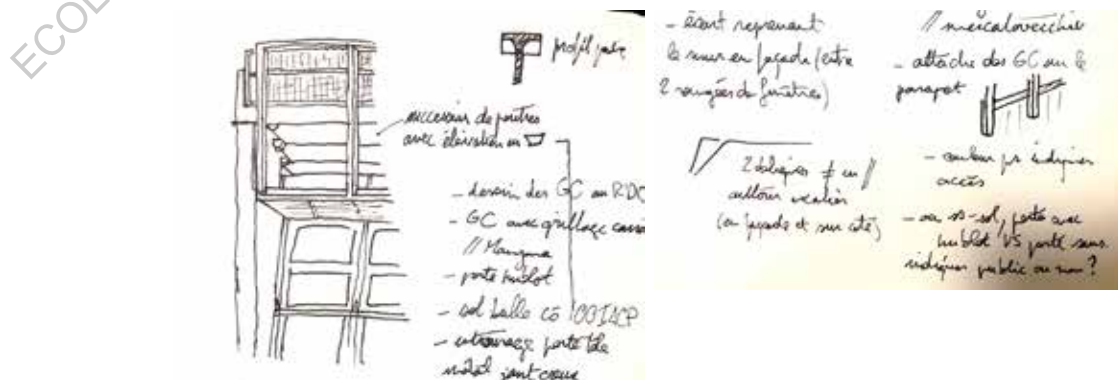 ECOL
profil
succession de poutres
avec élévation en
- dessin des GC au RDC
- GC avec grillage
// Mangin
- porte hublot
- sol dalle
- entourage porte tôle
métal joint creux
- écart reprenant
le mur en façade (entre
2 rangées de fenêtres)
2 obliques ≠ en //
autour escalier
(en façade et sur côté)
// mercatovecchio
- attache des GC sur le
parapet
- couleur pr indiquer
accès
- au ss-sol, porte avec
hublot VS porte sans
indiquer public ou non ?